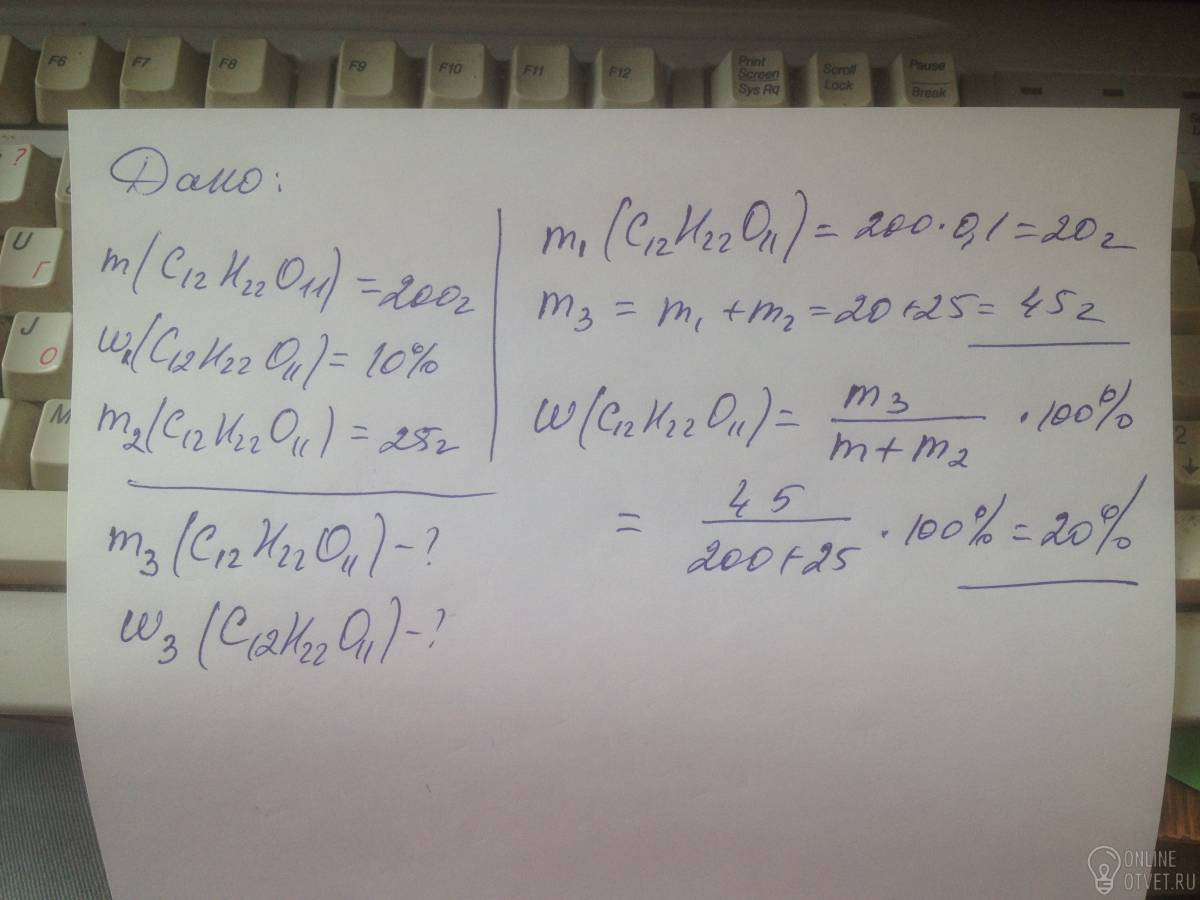 F6 F7 F8 F9 F10 F11 F12 Print Screen Sys Rq Scroll Lock Pause Break
?
U Г
J О
M
2
Дано:
m(C₁₂H₂₂O₁₁) = 200г
W₁(C₁₂H₂₂O₁₁) = 10%
m₂(C₁₂H₂₂O₁₁) = 25г
m₃(C₁₂H₂₂O₁₁) - ?
W₃(C₁₂H₂₂O₁₁) - ?
m₁(C₁₂H₂₂O₁₁) = 200·0,1 = 20г
m₃ = m₁ + m₂ = 20+25 = 45г
W(C₁₂H₂₂O₁₁) = m₃ / (m + m₂) · 100%
= 45 / (200+25) · 100% = 20%
ONLINE
OTVET.RU